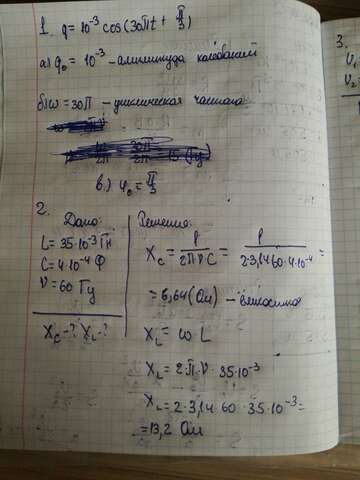 1. q = 10⁻³ cos(30πt + π/3)
а) q₀ = 10⁻³ - амплитуда колебаний
б) ω = 30π - циклическая частота
в.) φ₀ = π/3
2.
Дано: Решение:
L = 35·10⁻³ Гн
C = 4·10⁻⁴ Ф
ν = 60 Гц
X_C - ? X_L - ?
X_C = 1/(2πνC) = 1/(2·3,14·60·4·10⁻⁴) =
= 6,64 (Ом)
X_L = ωL
X_L = 2·π·ν·35·10⁻³
X_L = 2·3,14·60·35·10⁻³ =
= 13,2 Ом
3.
U₁
U₂